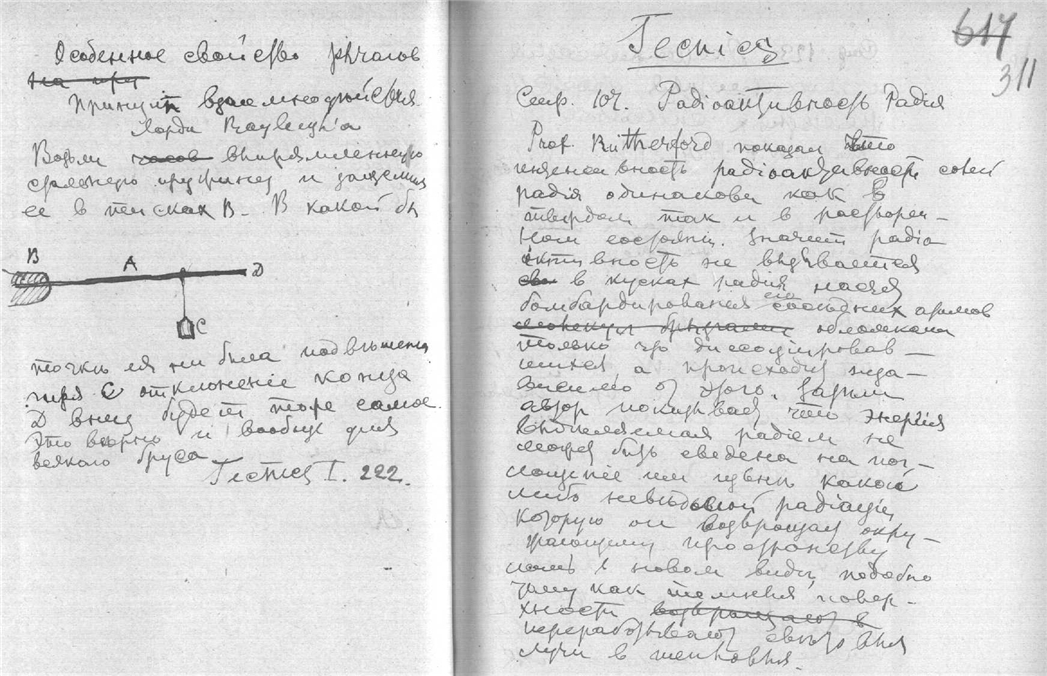 Особенное свойство рычагов
на
Принцип взаимнодействия
Лорди Rayleigh'а
Возьми часов выпрямленную
стальную пружину и защеми
ее в тисках В. В какой бы
В
А
D
С
точки А ни была подвешена
гиря С отклонение конца
D вниз будет тоже самое.
Это верно и вообще для
всякого бруса
Technics I. 222.
Technics
617
311
Сент. 104. Радіоактивность Радія
Prof. Rutherford показал что
интенсивность радіоактивности солей
радія одинакова как в
твердом так и в растворен-
ном состояни. Значит радіо
активность не вызывается
в кусках радія
бомбардирования его соседних атомов
обломками
только что диссоциировав-
шихся а происходит неза-
висимо от этого. Затем
автор показывает что энергія
выделяемая радіем не
может быть сведена на пог-
лощение им извне какой
либо неведомой радіаціи,
которую он возвращал окру-
жающему пространству
лишь в новом виде, подобно
тому как темныя повер-
хности возвращают в
переработывают световыя
лучи в тепловыя.